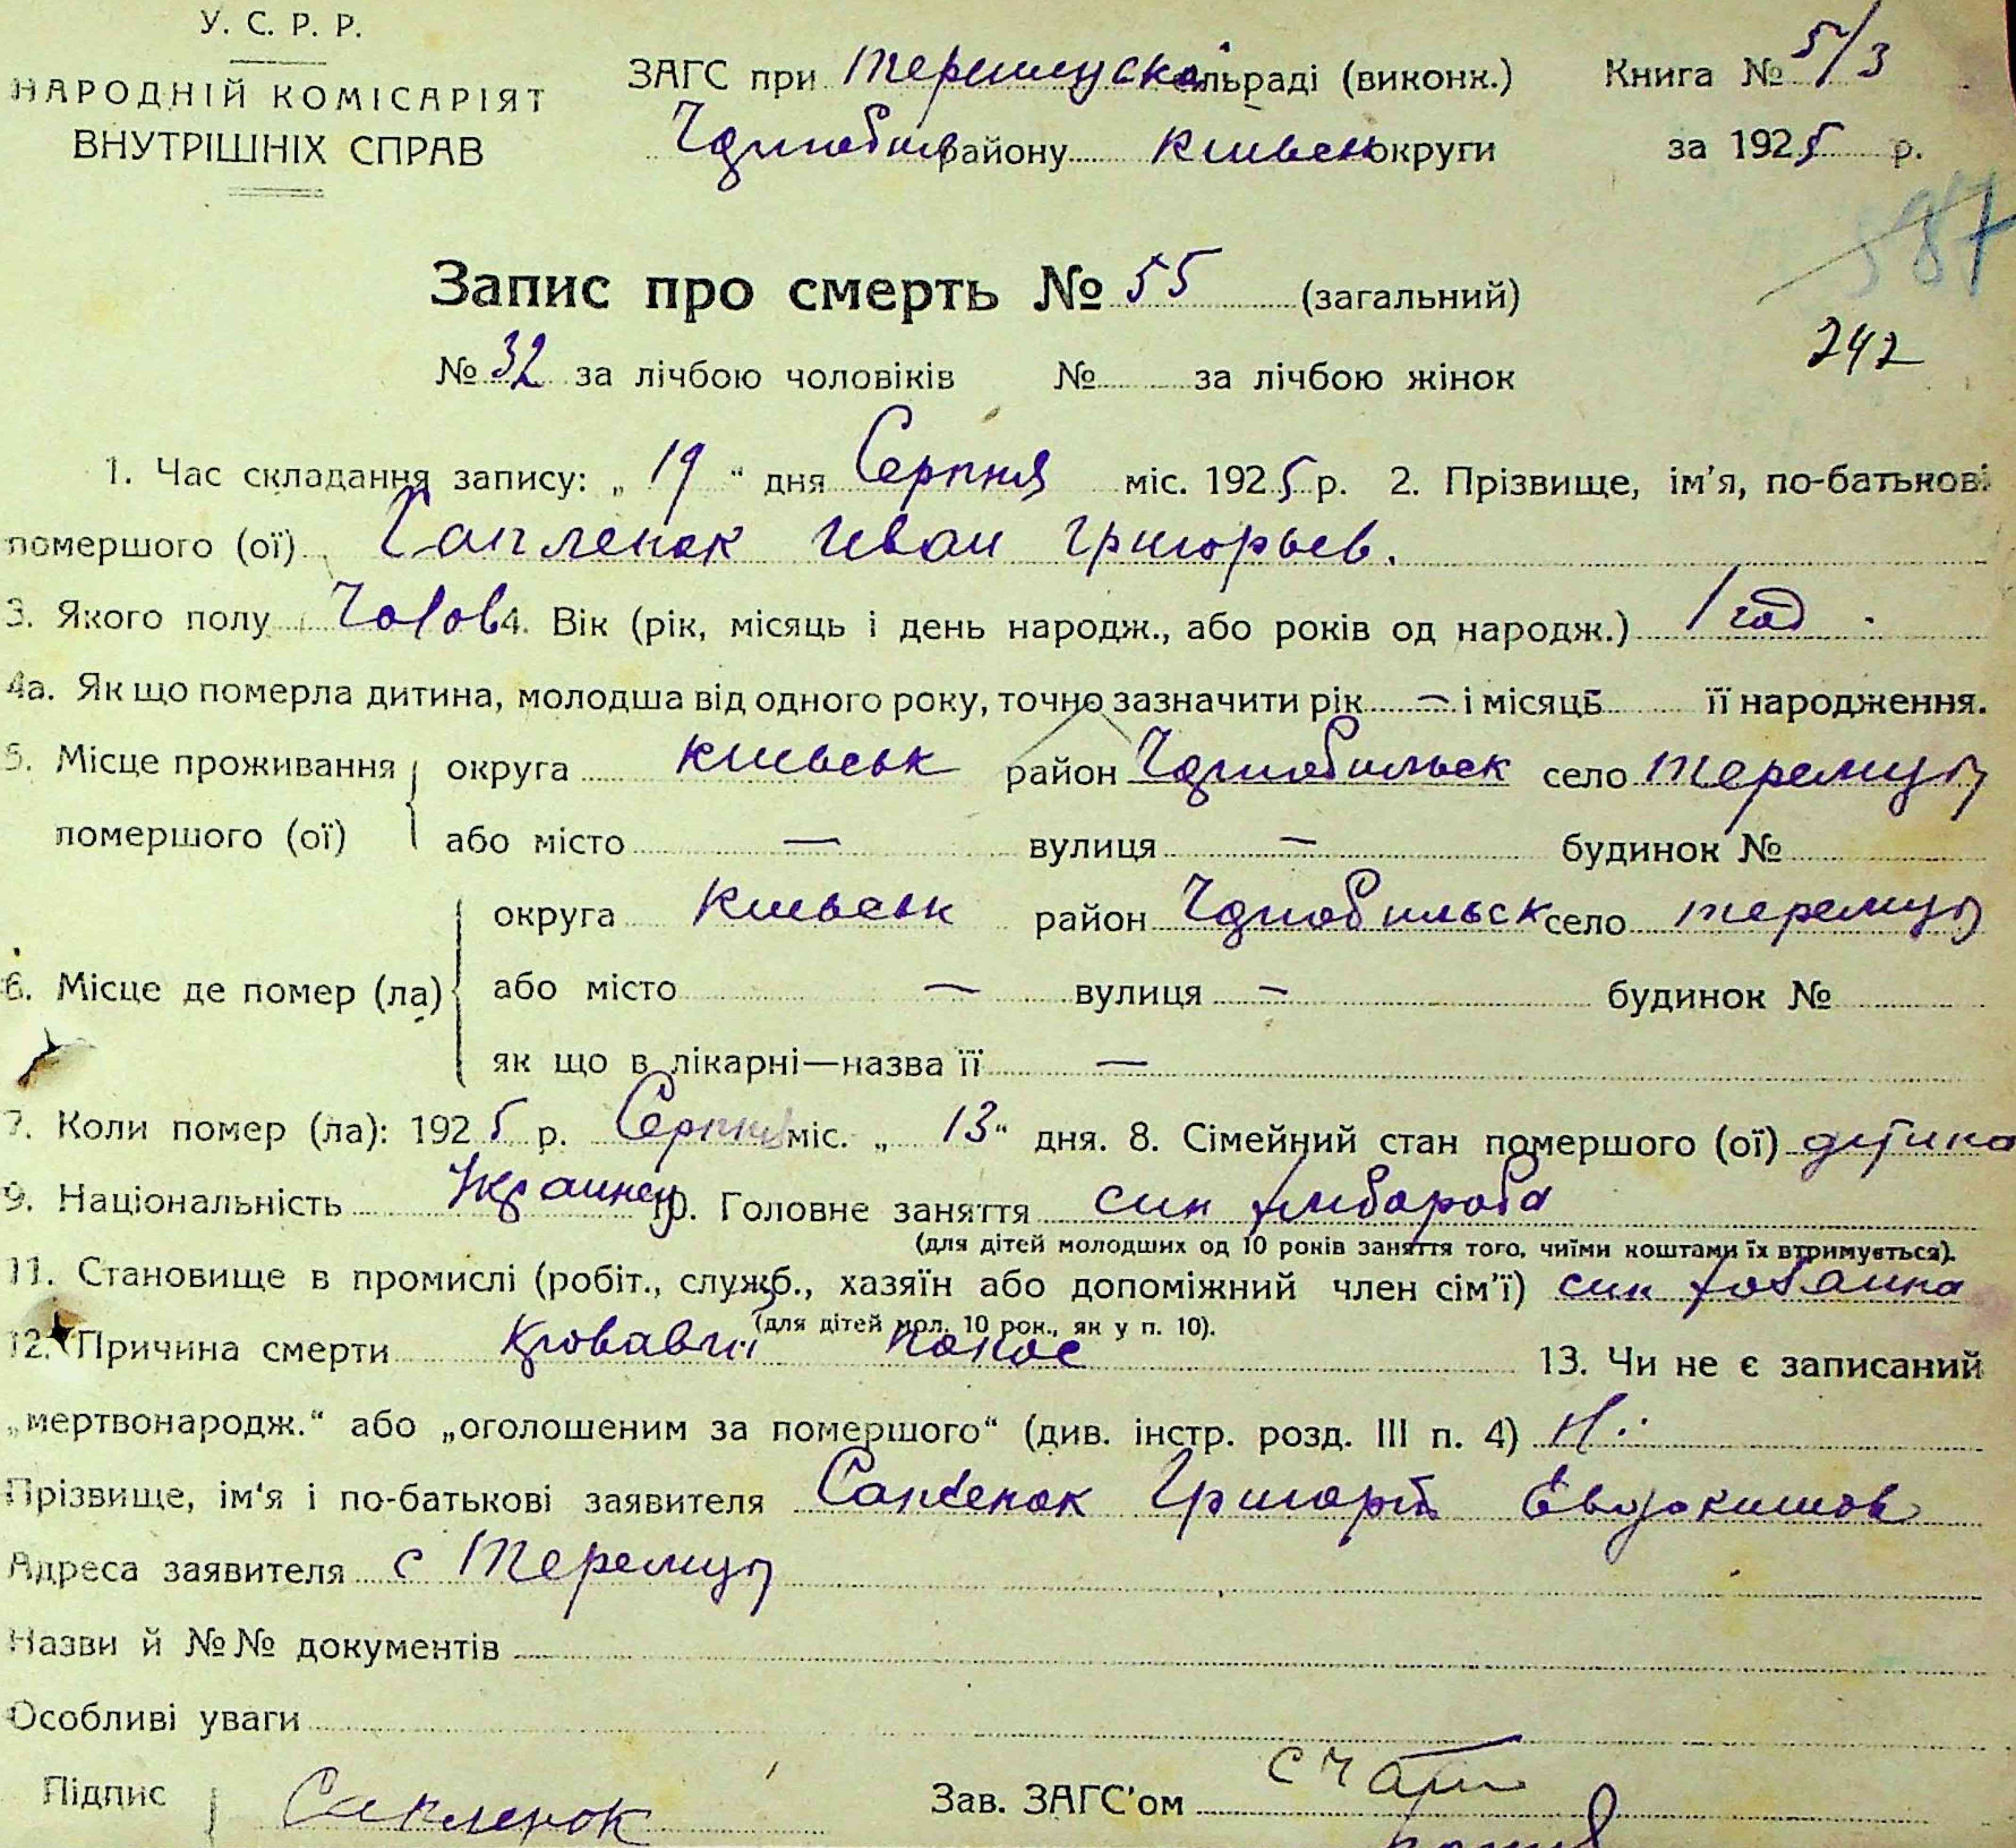 У. С. Р. Р.
НАРОДНІЙ КОМІСАРІЯТ
ВНУТРІШНІХ СПРАВ
ЗАГС при Теремцуской сільраді (виконк.)
Чорнобил району Киевськ округи
Книга № 5/3
за 1925 р.
587
Запис про смерть № 55 (загальний)
242
№ 32 за лічбою чоловіків № за лічбою жінок
1. Час складання запису: „ 19 “ дня Серпня міс. 1925 р. 2. Прізвище, ім'я, по-батькові
помершого (ої) Сапленок Иван Григорьев.
3. Якого полу Чолов 4. Вік (рік, місяць і день народж., або років од народж.) 1 год.
4а. Як що померла дитина, молодша від одного року, точно зазначити рік — і місяць її народження.
5. Місце проживання округа Киевськ район Чорнобильск село Теремцы
помершого (ої) або місто — вулиця — будинок №
округа Киевськ район Чорнобильск село Теремцы
6. Місце де помер (ла) або місто — вулиця — будинок №
як що в лікарні—назва її —
7. Коли помер (ла): 1925 р. Серпня міс. „ 13 “ дня. 8. Сімейний стан помершого (ої) дитина
9. Національність Украинец 10. Головне заняття син хлибороба
(для дітей молодших од 10 років заняття того, чиїми коштами їх втримується).
11. Становище в промислі (робіт., служб., хазяїн або допоміжний член сім'ї) син хозаина
(для дітей мол. 10 рок., як у п. 10).
12. Причина смерти Кровавий понос 13. Чи не є записаний
„мертвонародж.“ або „оголошеним за помершого“ (див. інстр. розд. III п. 4) Ні
Прізвище, ім'я і по-батькові заявителя Сапленок Григорий Евдокимов
Адреса заявителя с Теремцы
Назви й №№ документів
Особливі уваги
Підпис Сапленок Зав. ЗАГС'ом